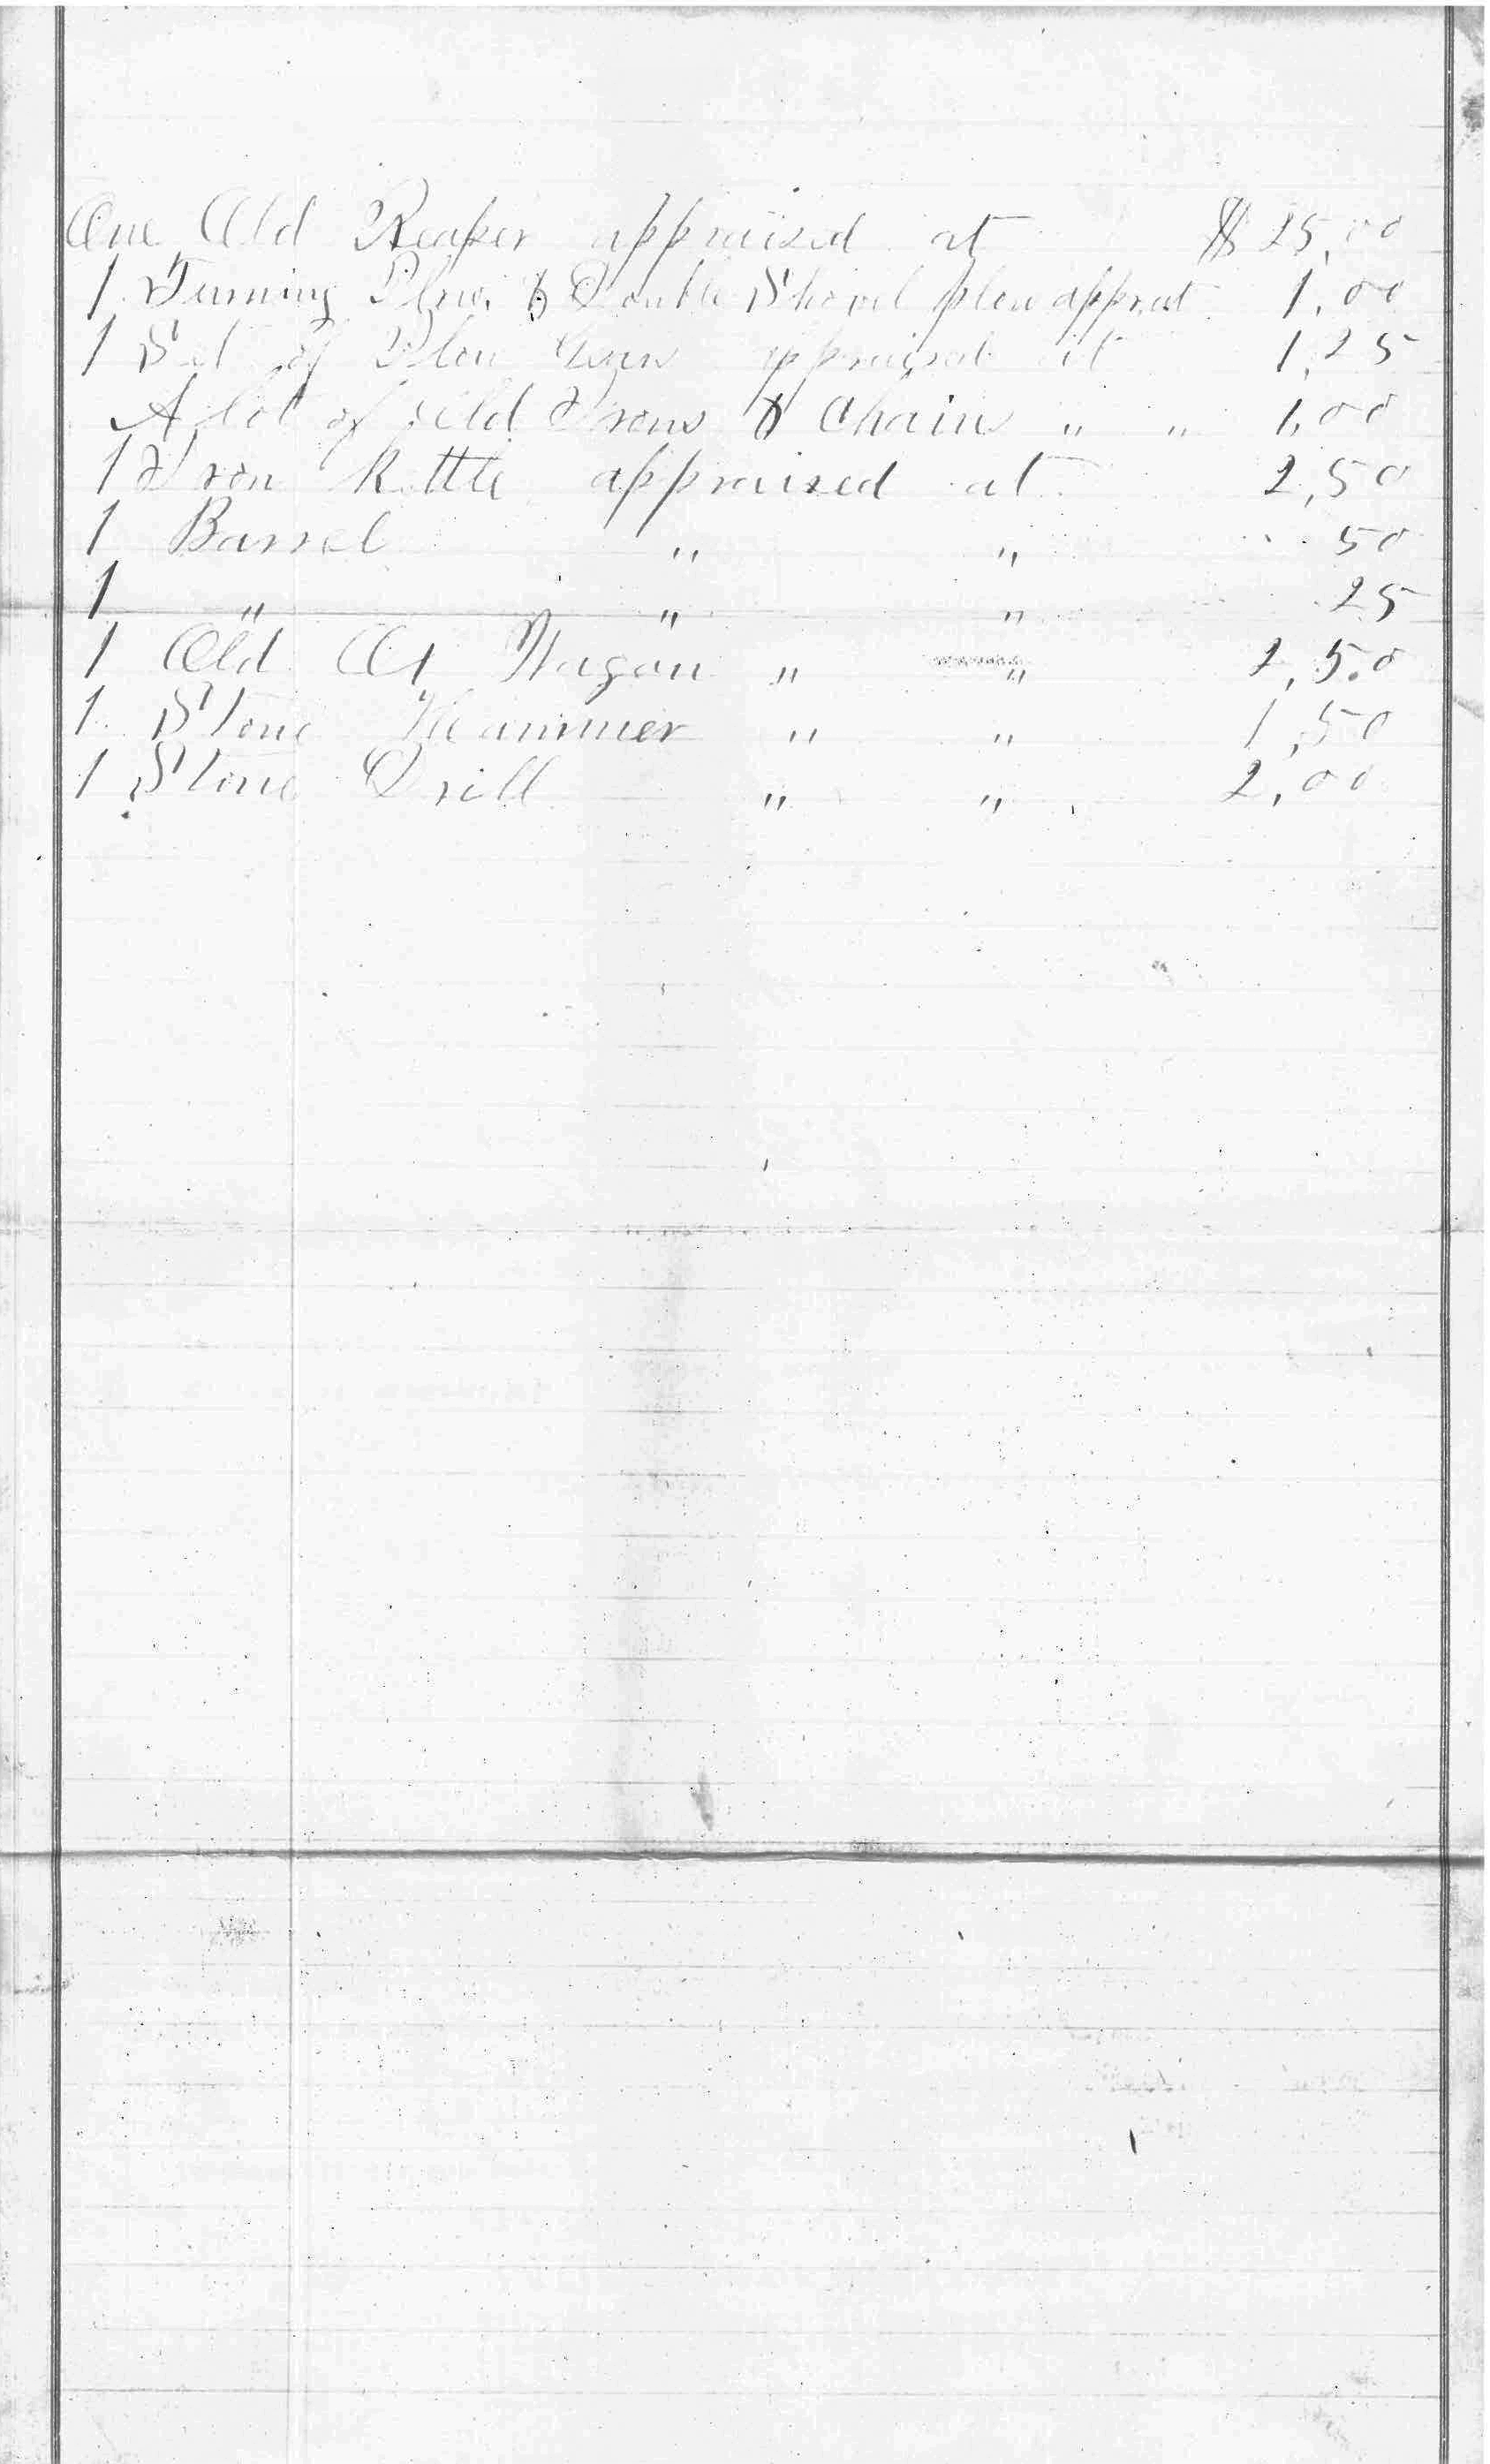 One Old Reaper appraised at $ 25,00
1 Turning Plow & Double Shovel plow app at 1,00
1 Set of Plow Gears appraised at 1,25
A lot of Old Irons & Chains " " 1,00
1 Iron Kettle appraised at 2,50
1 Barrel " " 50
1 " " " 25
1 Old Ox Wagon " " 2,50
1 Stone Hammer " " 1,50
1 Stone Drill " " 2,00